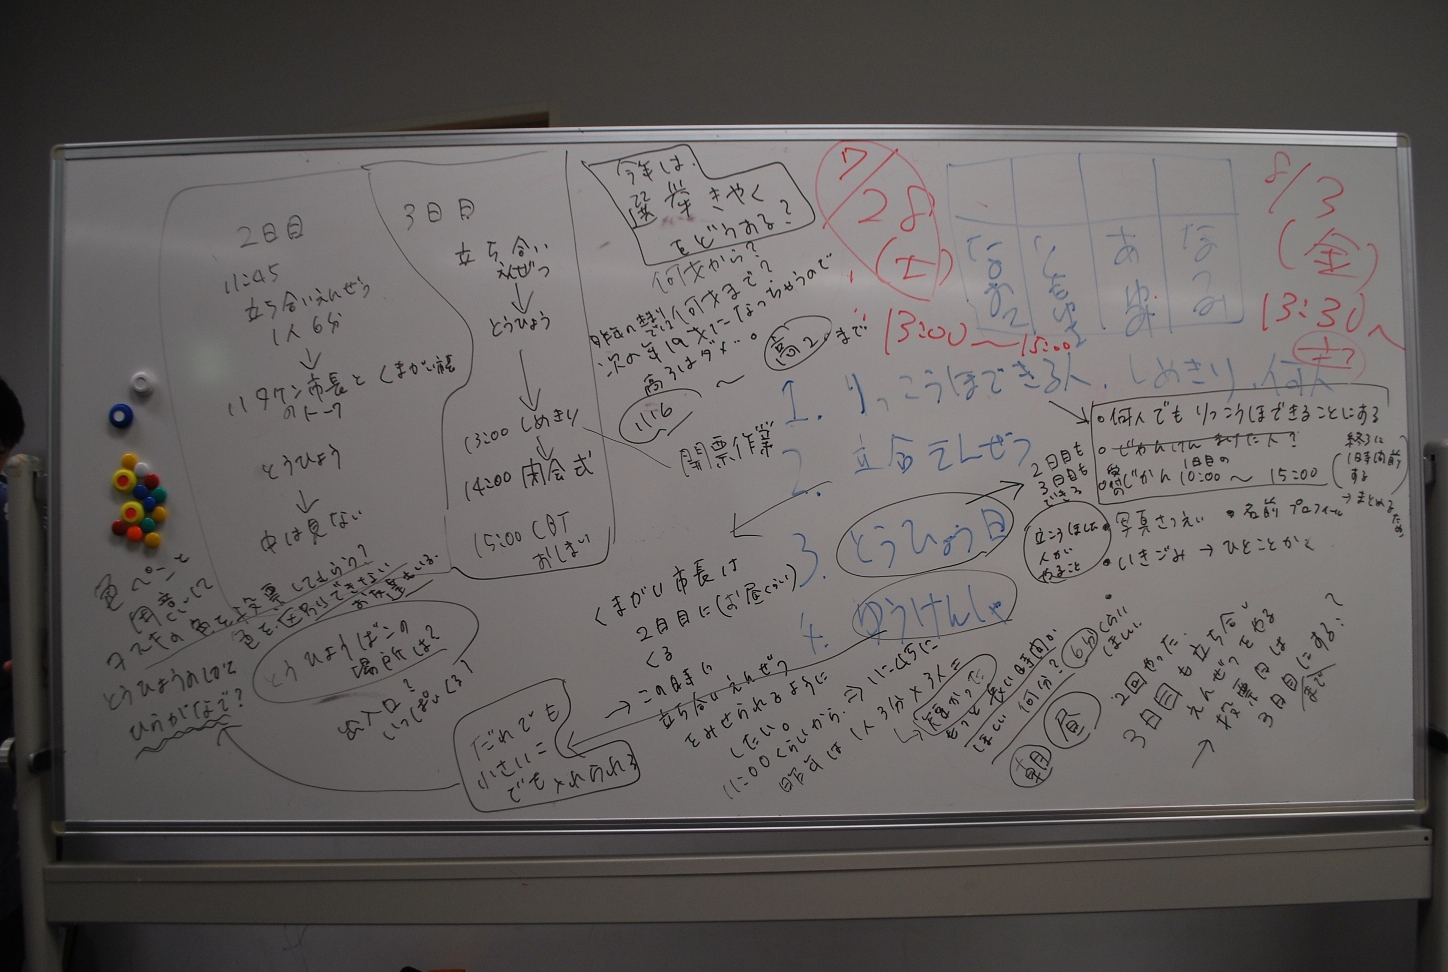 2日目
11:45
立ち合いえんぜつ
1人6分
↓
市長と くまがい市長
のトーク
とうひょう
↓
中は見ない
3日目
立ち合い
えんぜつ
↓
とうひょう
↓
13:00 しめきり
↓
14:00 閉会式
15:00 CBT
おしまい
開票作業
今年は、
選挙きやく
をどうする?
何才から?
何才まで?
次の年19才になっちゃうので
高3はダメ。
小6 〜 高2 まで
7/28
(土)
13:00〜15:00
8/3
(金)
13:30〜
土?
なお
あゆみ
なるみ
1. りっこうほできる人、しめきり、何人
2. 立合えんぜつ
3. とうひょう日
4. ゆうけんしゃ
2日目も
3日目も
できる
○何人でもりっこうほできることにする
○ぜんかいけん
受付の じかん 1日目の 10:00〜 15:00
終了に
1時間前
する
→まとめる
ため
立こうほした
人が
やること
・写真さつえい ・名前 プロフィール
・いきごみ → ひとことかく
くまがい市長は
2日目に(お昼くらい)
くる
→この時に
立ち合いえんぜつ
をみせられるように
したい。
11:00くらいから。⇒ 11:45に
昨年は1人3分×3人=
↳ 短かった
もっと長い時間が
ほしい 何分? 6分くらい
ほしい
朝 昼
2回やった。
3日目も立ち合い
えんぜつをやる
→投票日は
3日目にする?
まで
色ペンを
用意しといて
色を投票してもらう?
色を区別できない
お客さんもいる
とうひょうのしかた
ひらがなで?
とうひょうばこの
場所は?
出入口?
いっぱいくる?
だれでも
小さいこ
でも入れられる